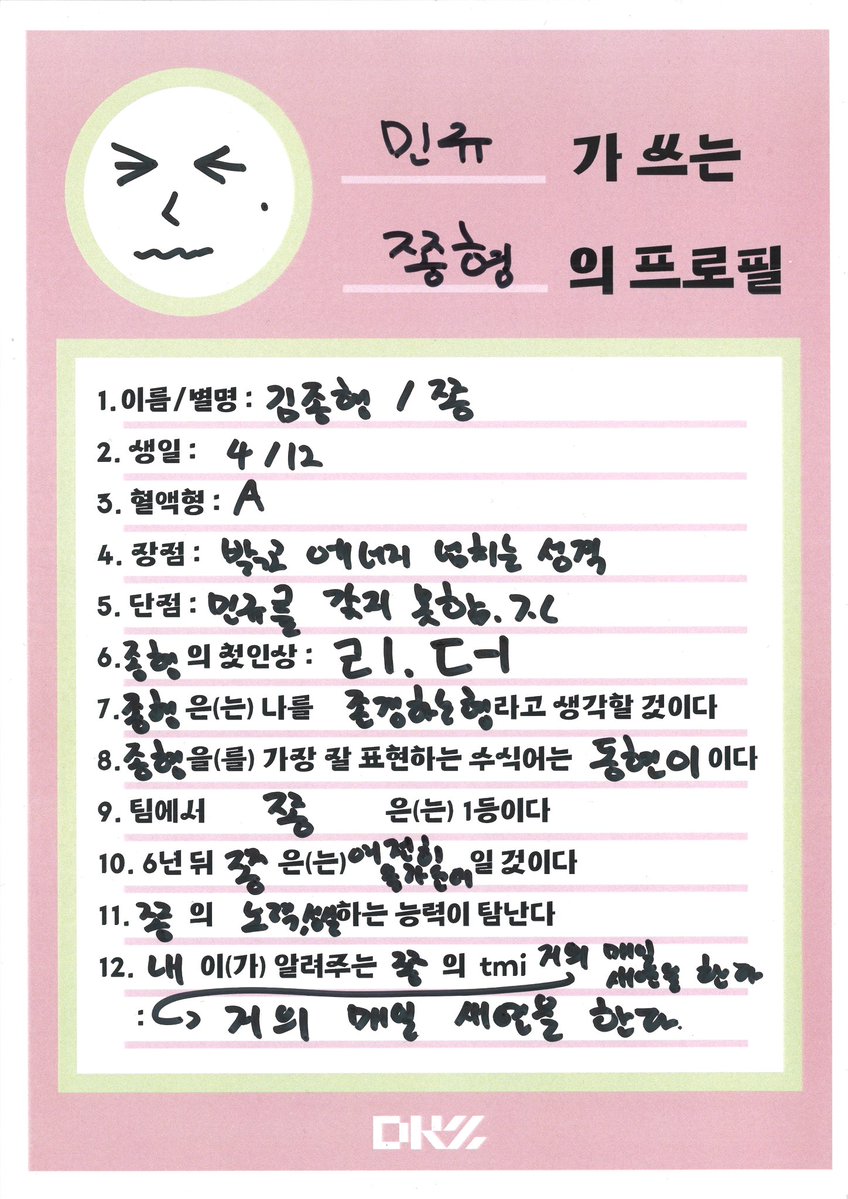 민규 가 쓰는
쫑형 의 프로필
1. 이름/별명 : 김종형 / 쫑
2. 생일 : 4/12
3. 혈액형 : A
4. 장점 : 밝고 에너지 넘치는 성격
5. 단점 : 민규를 갖지 못함.
6. 종형 의 첫인상 : 리.더
7. 종형 은(는) 나를 존경하는형 라고 생각할 것이다
8. 종형 을(를) 가장 잘 표현하는 수식어는 동현이 이다
9. 팀에서 쫑 은(는) 1등이다
10. 6년 뒤 쫑 은(는) 여전히 일 것이다
11. 쫑 의 노력,성실 하는 능력이 탐난다
12. 내 이(가) 알려주는 쫑 의 tmi 거의 매일 한다
: 거의 매일 한다.
DKZ